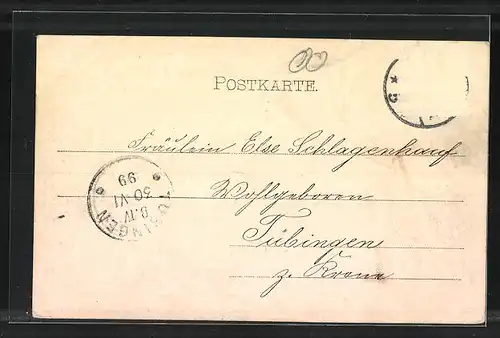 POSTKARTE.
Fräulein Else Schlagenhauf
Wohlgeboren
Tübingen
z. Krone
TÜBINGEN
30 VI
99